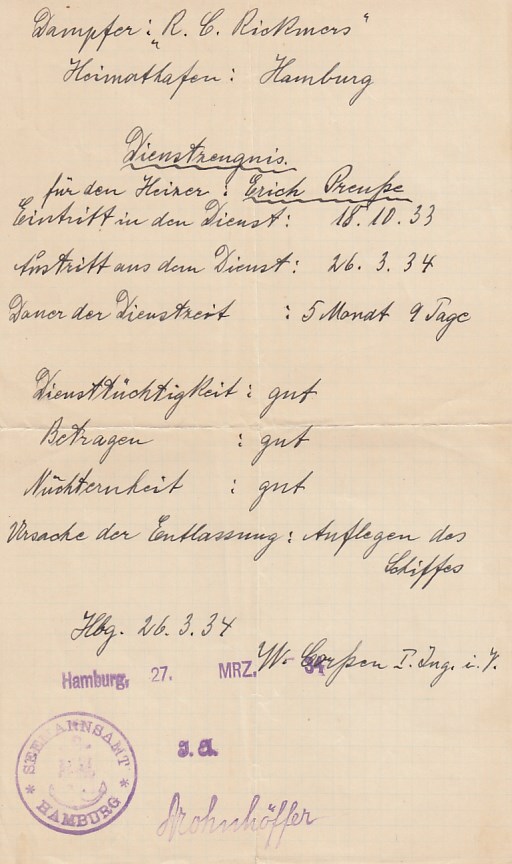 Dampfer: "R. C. Rickmers"
Heimathafen: Hamburg
Dienstzeugnis.
für den Heizer: Erich Preuße
Eintritt in den Dienst: 18.10.33
Austritt aus dem Dienst: 26.3.34
Dauer der Dienstzeit : 5 Monat 9 Tage
Diensttüchtigkeit: gut
Betragen : gut
Nüchternheit : gut
Ursache der Entlassung: Auflegen des
Schiffes
Hbg. 26.3.34
W. Corßen I. Ing. i. V.
Hamburg, 27. MRZ. 34
SEEMANNSAMT
* HAMBURG *
J. A.